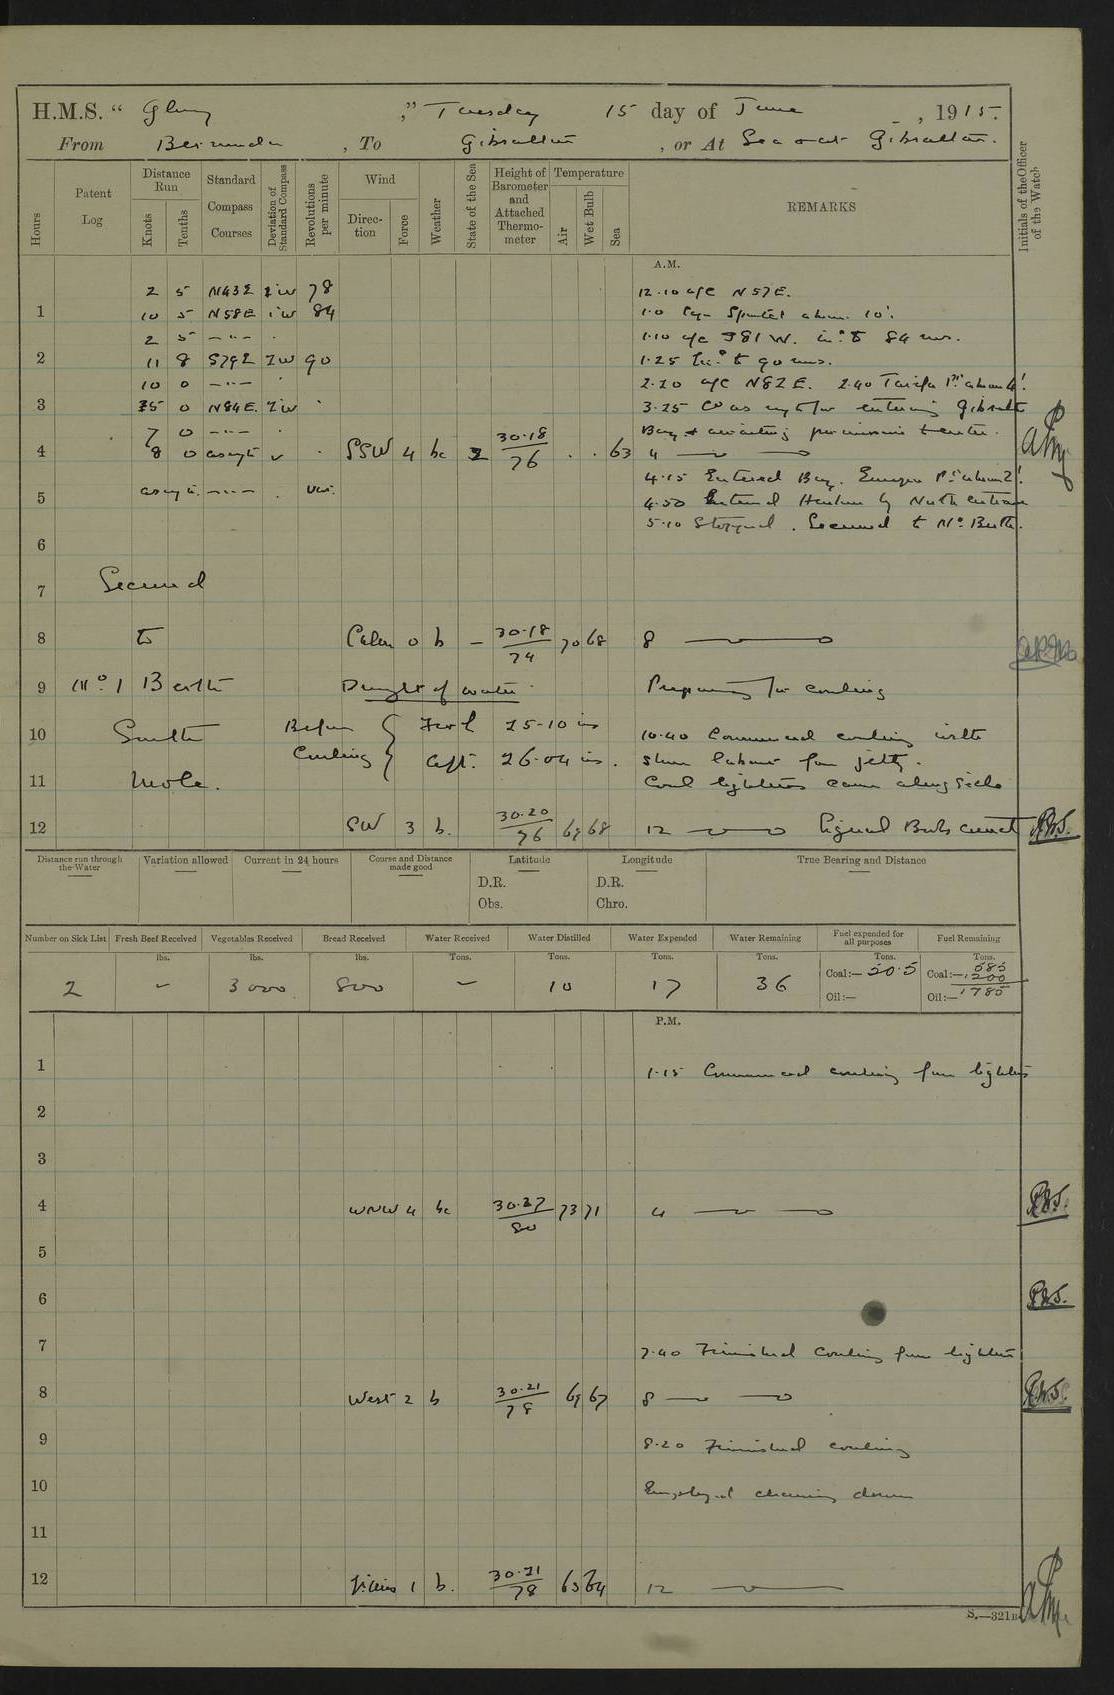 H.M.S. “ Glory ,” Tuesday 15 day of June , 1915.
From Bermuda , To Gibraltar , or At Sea & at Gibraltar.
Hours
Patent Log
Distance Run
Knots
Tenths
Standard Compass Courses
Deviation of Standard Compass
Revolutions per minute
Wind
Direction
Force
Weather
State of the Sea
Height of Barometer and Attached Thermometer
Temperature
Air
Wet Bulb
Sea
REMARKS
Initials of the Officer of the Watch
A.M.
2 5 N43E 1W 78 12.10 a/c N57E.
1 10 5 N58E 1W 84 1.0 Cape Spartel abeam 10'.
2 5 -"- 1.10 a/c S81 to 84 revs.
2 11 8 S79E 2W 90 1.25 Inc. to 90 revs.
10 0 -"- 2.20 a/c N82E. 2.40 Tarifa Pt abeam 4'.
3 5 0 N84E. 2W 3.25 Co as reqte for entering Gibraltar
7 0 -"- Bay & awaiting permission to enter.
4 8 0 as reqte SSW 4 bc 2 30.18/76 . . 63 4
4.15 Entered Bay. Europa Pt abeam 2'.
5 as reqte. -"- Var. 4.50 Entered Harbour by North entrance
5.10 Stopped. Secured to No. 1 Berth.
6
7 Secured
8 to Calm 0 b - 30.18/74 70 68 8
9 No 1 Berth Draught of water Preparing for coaling
10 South Before Coaling Forwd 25-10 ins 10.40 Commenced coaling with
Aft. 26-04 ins. shore labour from jetty.
11 Mole. Coal lighters came alongside
12 SW 3 b. 30.20/76 69 68 12 Signal Books correct R.W.S.
Distance run through the Water
Variation allowed
Current in 24 hours
Course and Distance made good
Latitude
D.R.
Obs.
Longitude
D.R.
Chro.
True Bearing and Distance
Number on Sick List
Fresh Beef Received
Vegetables Received
Bread Received
Water Received
Water Distilled
Water Expended
Water Remaining
Fuel expended for all purposes
Fuel Remaining
lbs. lbs. lbs. Tons. Tons. Tons. Tons. Tons. Tons.
2 - 3000 800 - 10 17 36 Coal:— 50.5 Coal:— 585
1200
Oil:— Oil:— 1785
P.M.
1 1.15 Commenced coaling from lighters
2
3
4 WNW 4 bc 30.27/80 73 71 4 R.W.S.
5
6 R.W.S.
7 7.40 Finished Coaling from lighters
8 West 2 b 30.21/78 69 67 8 R.W.S.
9 8.20 Finished coaling
10 Employed cleaning down
11
12 1 b. 30.21/78 65 64 12
S.—321B